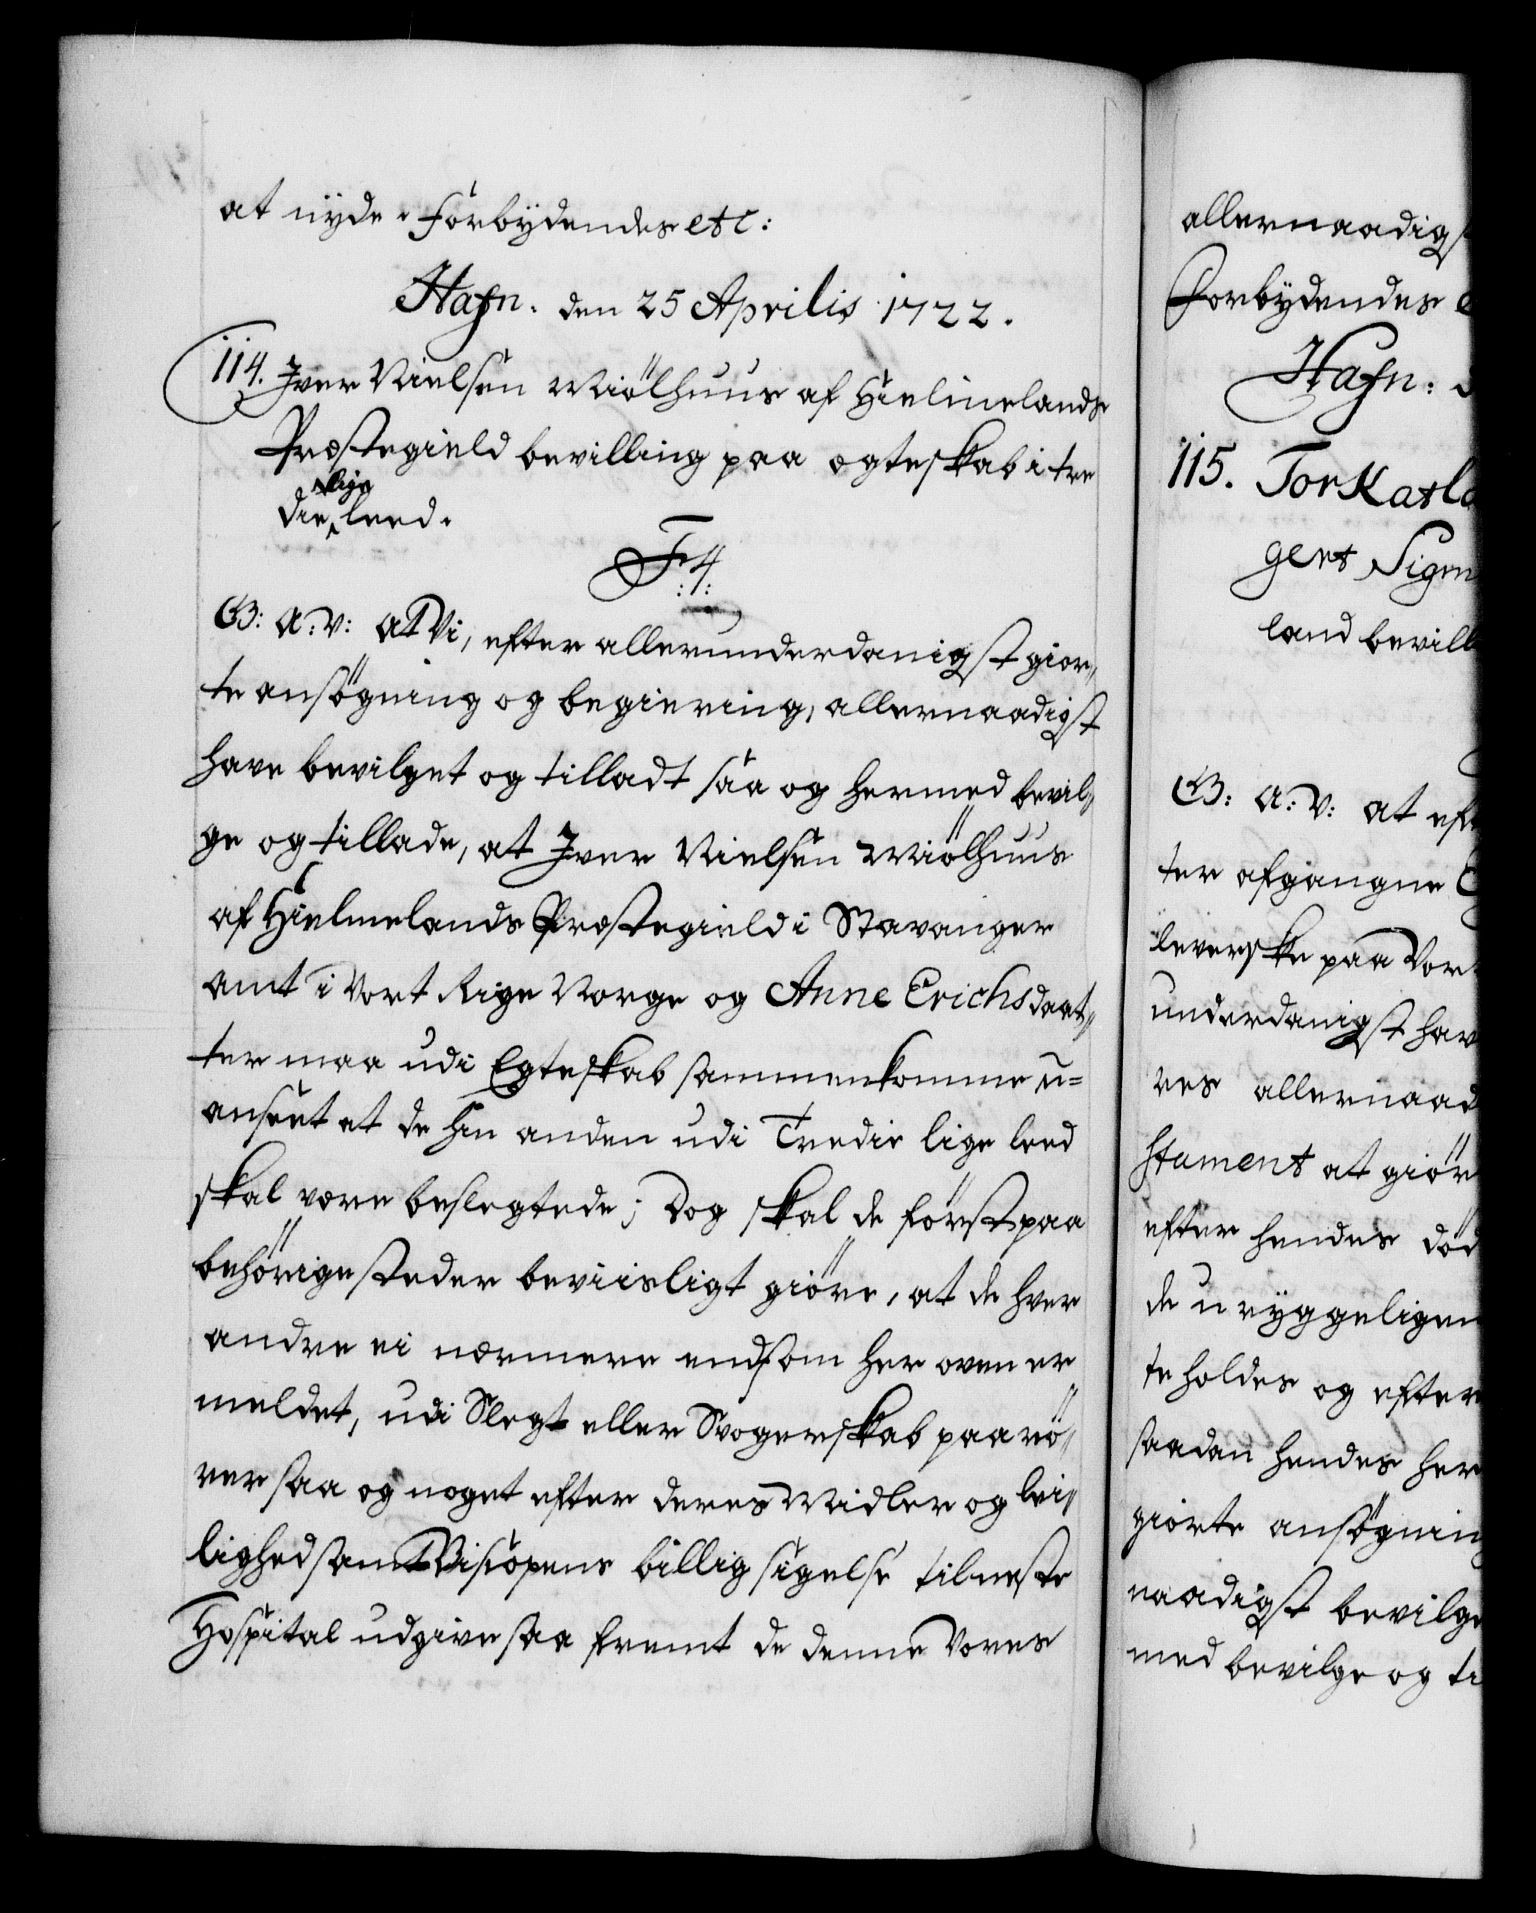 at nÿde. Forbÿdendes etc:
Hafn. den 25 Aprilis 1722.
114. Iver Nielsen Miölhuus af Hielmelands
Præstegield bevilling paa ægteskab i tre
die lige leed.
F4
G: A: V: At Vi, efter allerunderdanigst gior,,
te ansögning og begiering, allernaadigst
have bevilget og tilladt saa og hermed bevil,,
ge og tillade, at Iver Nielsen Miölhuus
af Hielmelands Præstegield i Stavanger
amt i Vort Rige Norge og Anne Erichsdaat,,
ter maa udi Egteskab sammenkomme u=
anseet at de hin anden udi Tredie lige leed
skal være beslegtede; Dog skal de först paa
behörige steder beviisligt giöre, at de hver
andre ei nærmere end som her oven er
meldet, udi Slegt eller Svogerskab paarö,,
rer saa og noget efter deres Midler og lei,,
lighed samt Biscopens billig sigelse til neste
Hospital udgive saa fremt de denne Vores
allernaadigst
Forbÿdendes e
Hafn:
115. Torkatla
gert Sigm
land bevill
G: A: V: at eft
ter afgangne
leverske paa Vor
underdanigst hav
res allernaad
stament at giör
efter hendes död
de urÿggeligen
te holdes og efter
saadan hendes her
giorte ansögning
naadigst bevilge
med bevilge og ti